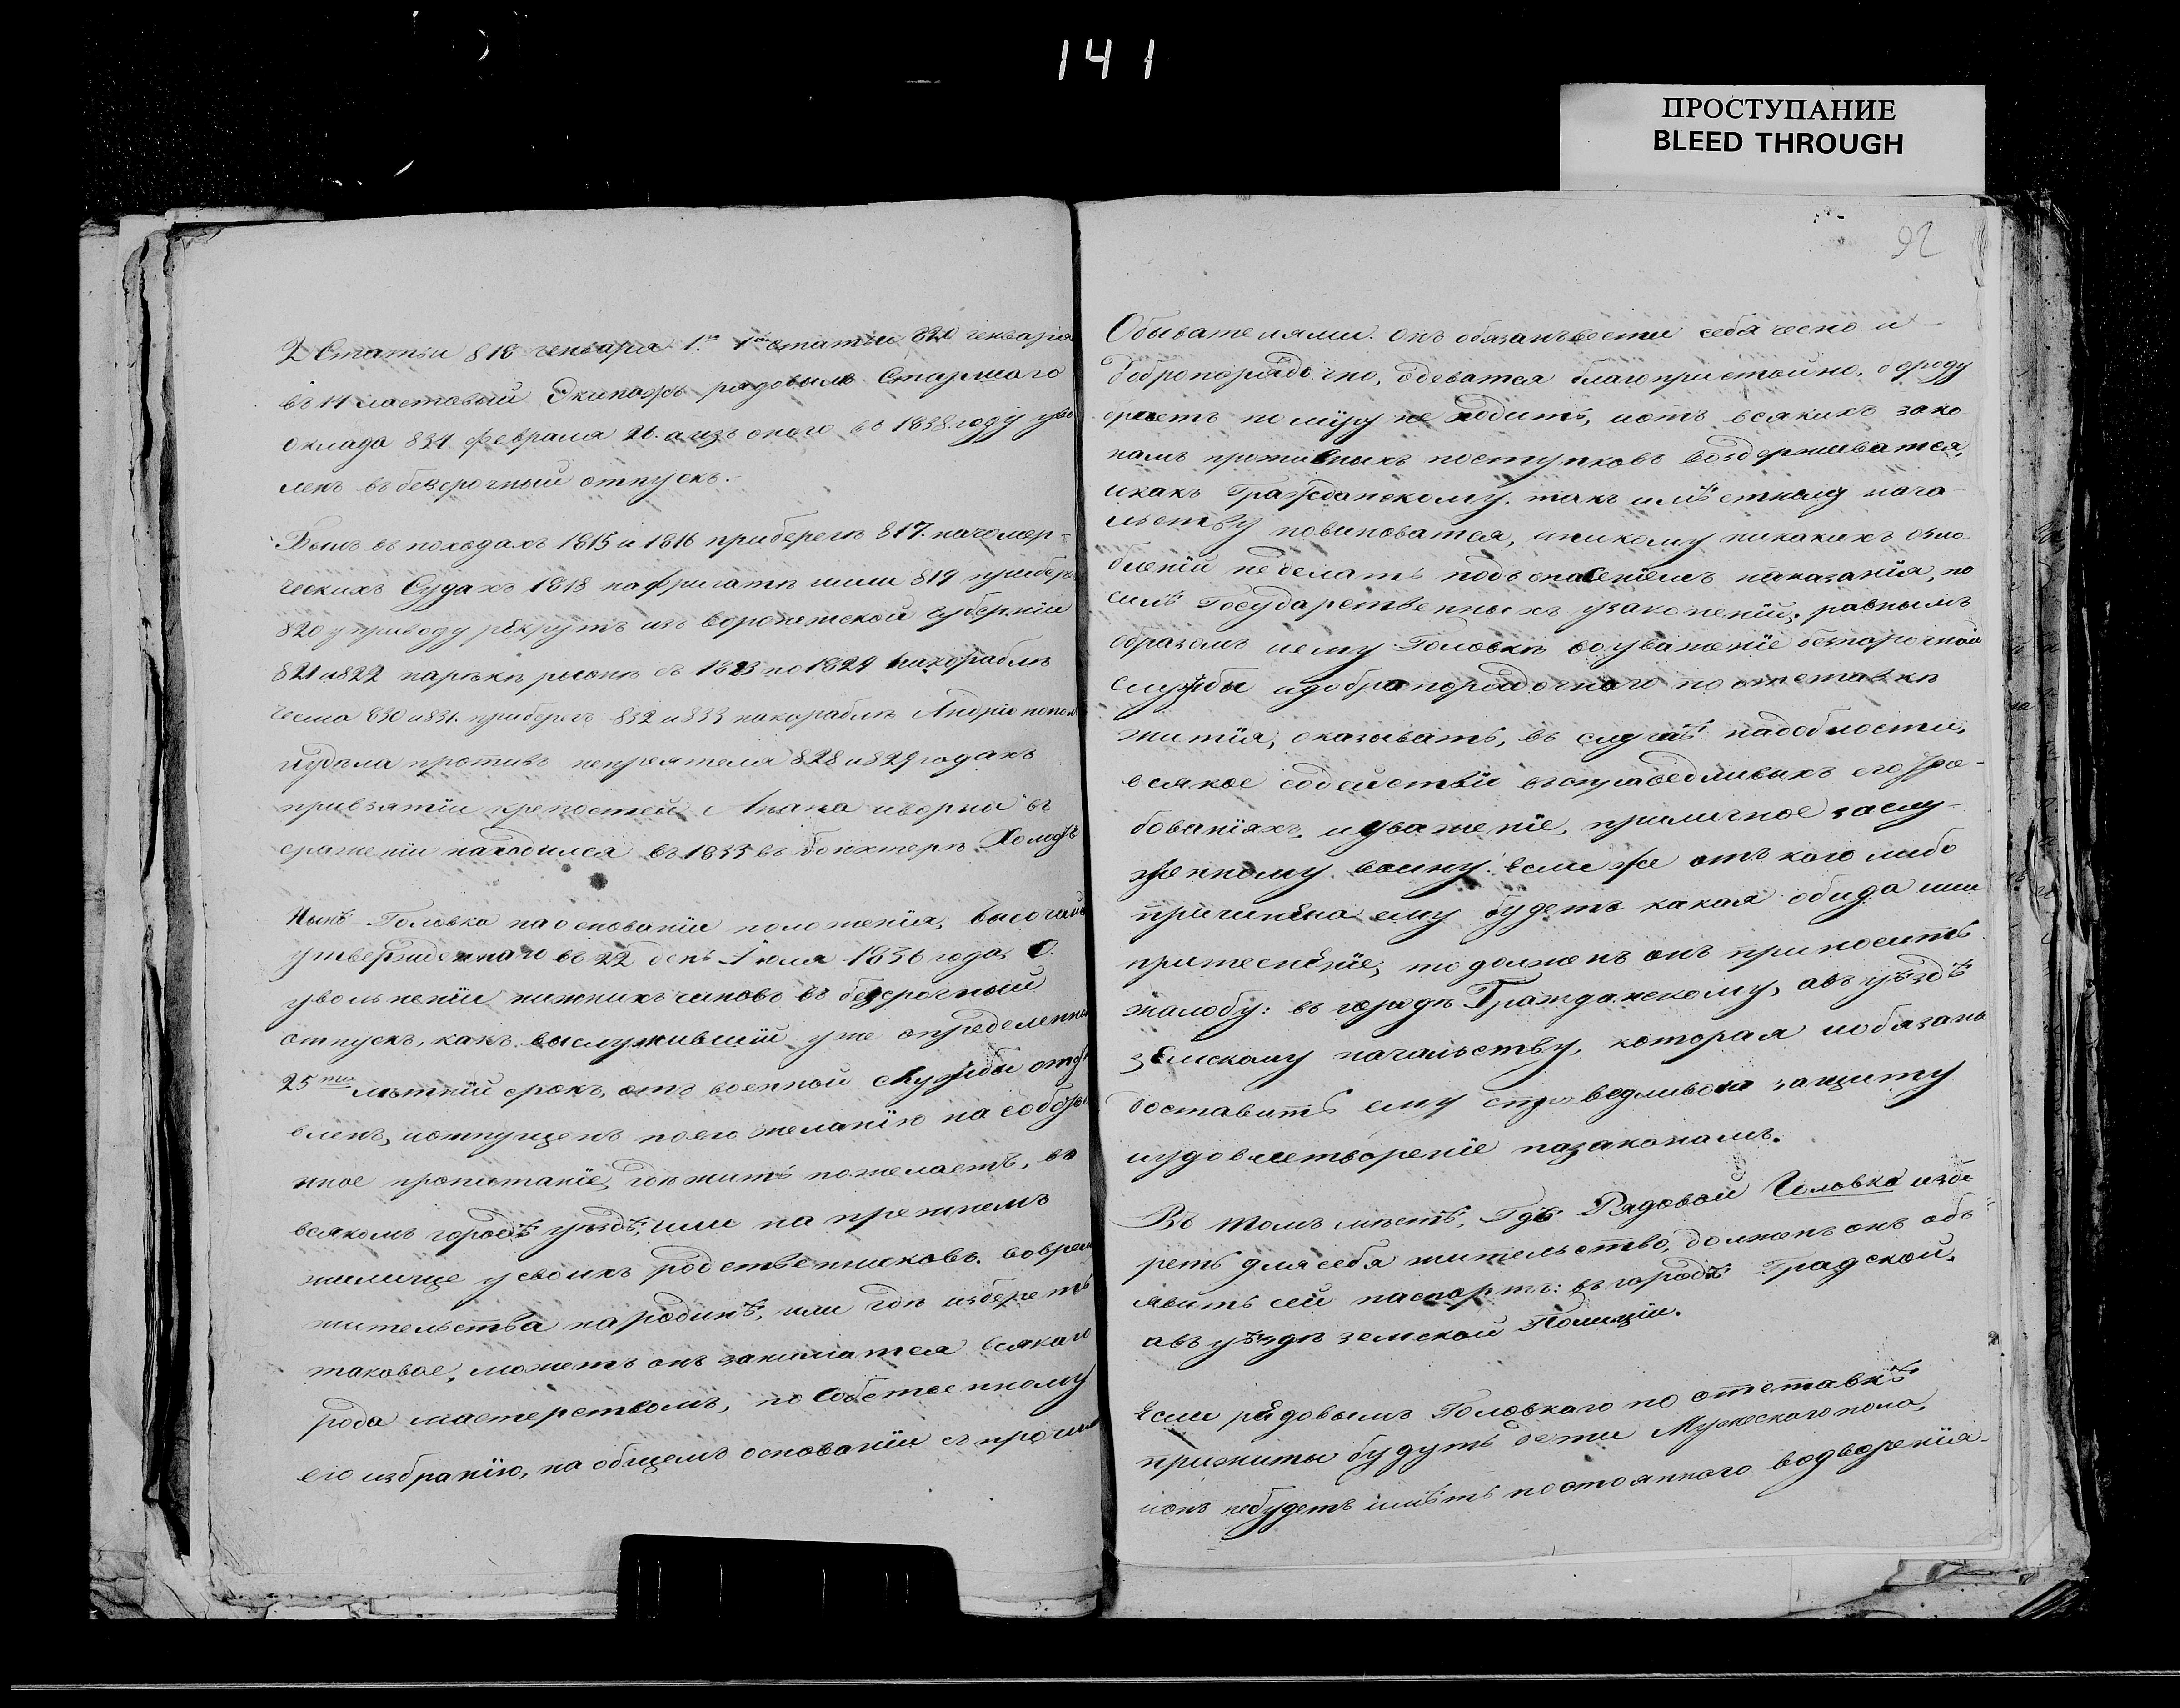 141
ПРОСТУПАНИЕ
BLEED THROUGH
92
2 Статьи 818 генваря 1. 1й статьи 821 генваря
въ 11 ластовый Экипажъ рядовымъ Старшаго
оклада 831 февраля 21. аизъ онаго въ 1838 году уво
ленъ въ безсрочный отпускъ.
Былъ въ походахъ 1815 и 1816 приберегъ 817. начомор=
ческихъ Судахъ 1818 на фригатѣ 819 приберегъ
820 уприводу рекрутъ изъ воронежской губерніи
821 и 822 съ 1823 по 1829 накораблѣ
чесма 830 и 831. приберегъ 832 и 833 накораблѣ
противъ непріятеля 828 и 829 годахъ
привзятіи крепостей Анапа иварна въ
сраженіи находился въ 1835 въ
Нынѣ Головка на основаніи положенія, высочайше
утвержденнаго въ 22 день Іюля 1836 года, О.
увольненіи нижнихъ чиновъ въ безсрочный
отпускъ, какъ выслужившій уже определенный
25ти лѣтній срокъ, отъ военной службы
еленъ, иотпущенъ поего желанію на собстве
нное пропитаніе, гдѣ жить пожелаетъ, во
всякомъ городѣ уѣздѣ, или на прежнемъ
жилище усвоихъ родственниковъ. вовремя
жительства народинѣ, или гдѣ изберетъ
таковое, можетъ онъ заниматся всякаго
рода мастерствомъ, по собственному
его избранію, на общемъ основаніи съ прочими
Обывателями. Онъ обязанъ вести себя чесно и
добропорядочно, одеватся благопристойно, бороду
брить поміру не ходить, иотъ всякихъ зако
намъ противныхъ поступковъ воздерживатся,
икакъ Гражданскому, такъ имѣстному нача
льству повиноватся, иникому никакихъ озло
бленій неделать подъ опасеніемъ наказанія, по
силѣ Государственныхъ узаконеній; равнымъ
образомъ иему Головкѣ воуваженіе безпорочной
службы идобропорядочнаго поотставкѣ
житія, оказывать, въ случаѣ надобности,
всякое содействіе въсправедливыхъ его тре-
бованіяхъ, иуваженіе, приличное заслу-
женному воину: если же отъ кого либо
причинена ему будетъ какая обида или
притесненіе, то долженъ онъ приносить
жалобу: въ городѣ Гражданскому, авъ уѣздѣ
земскому начальству, которая иобязаны
доставить ему справедливою защиту
иудовлетвореніе позаконамъ.
Въ томъ мѣстѣ, Гдѣ Рядовой Головка избе
реть для себя жительство, долженъ онъ объ
явить сей паспортъ: въ городѣ Градской,
авъ уѣздѣ земской Полиціи.
Если рядовымъ Головкаго по отставкѣ
прижиты будутъ дети Мужескаго пола,
ионъ небудетъ имѣть постояннаго водворенія